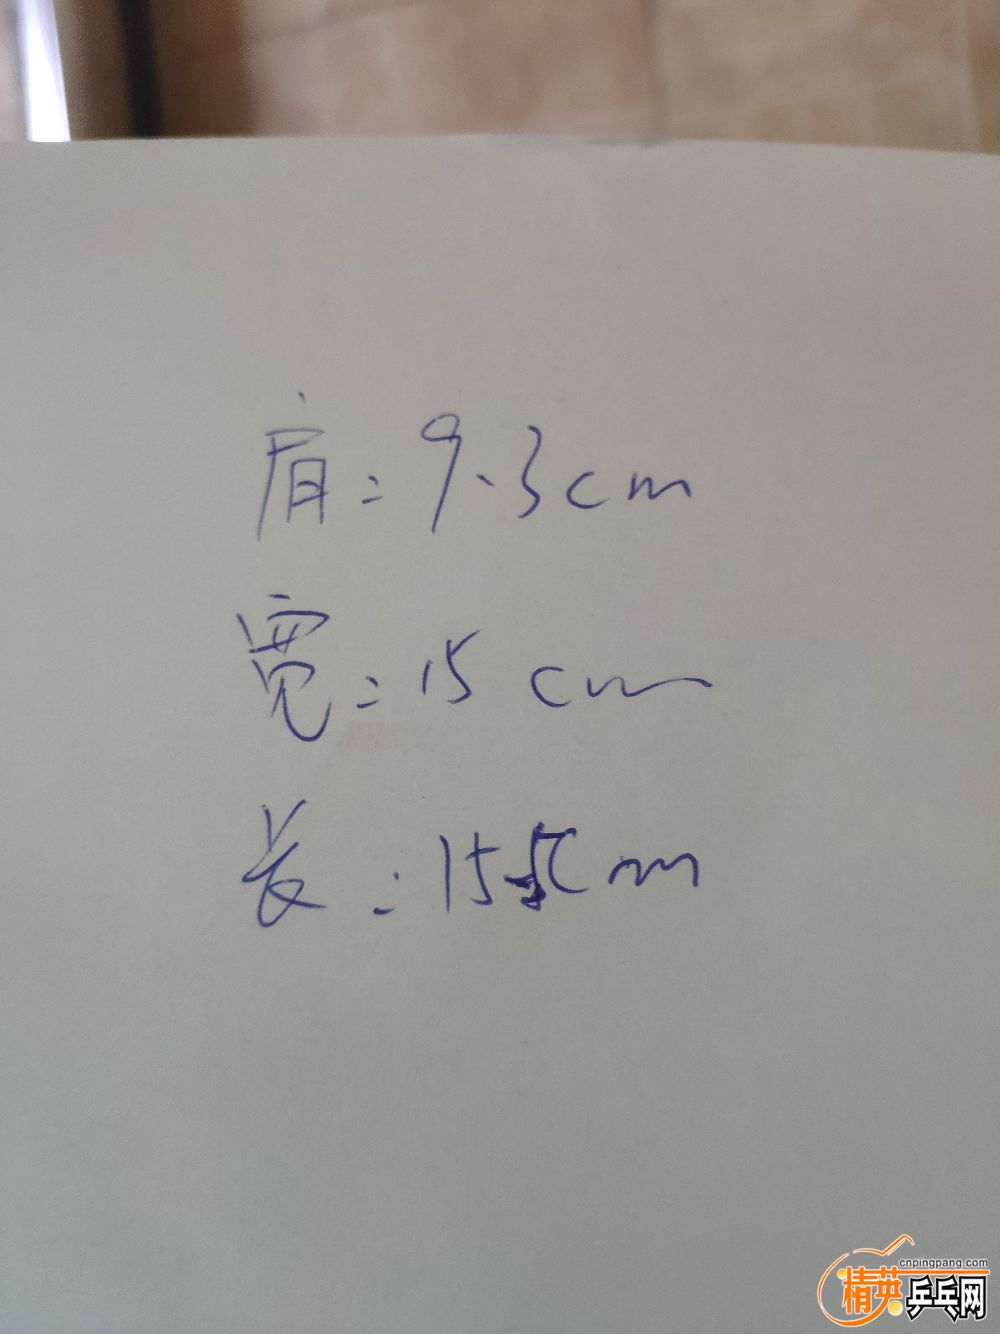 肩:9.3cm
宽:15cm
长:15.5cm
cnpingpang.com
精英乒乓网